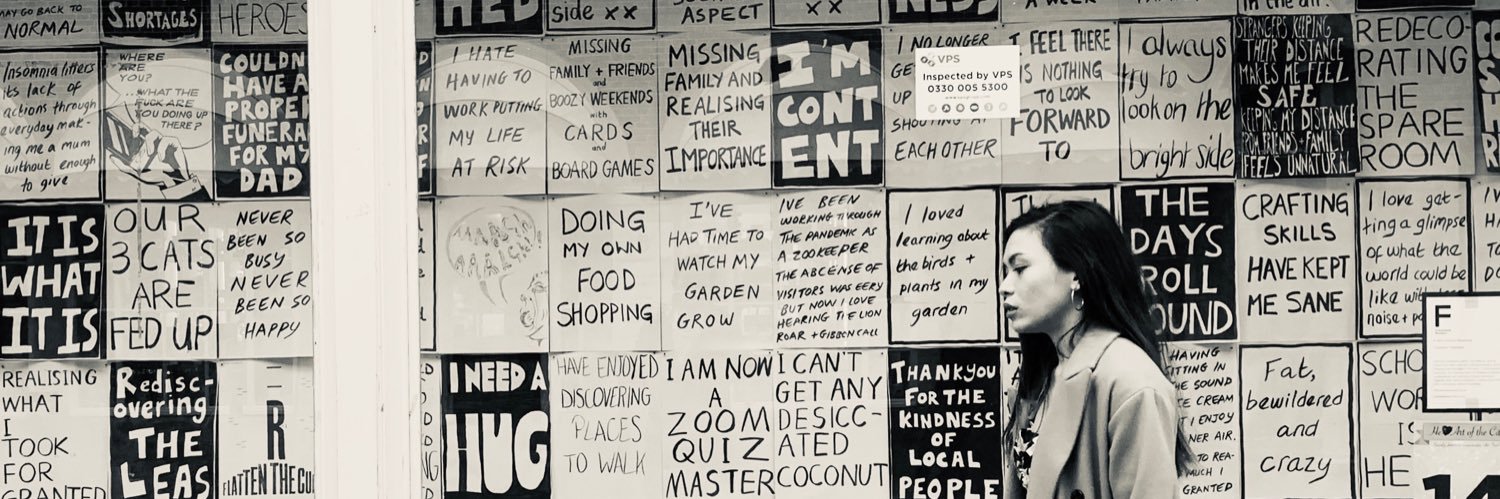 MAY GO BACK TO
NORMAL
SHORTAGES
HEROES
side xx
ASPECT
xx
Insomnia litters
its lack of
actions through
everyday mak-
ing me a mum
without enough
to give
WHERE
ARE
YOU?
...WHAT THE
FUCK ARE
YOU DOING UP
THERE?
COULDN
HAVE A
PROPER
FUNERA
FOR MY
DAD
I HATE
HAVING TO
WORK PUTTING
MY LIFE
AT RISK
MISSING
FAMILY + FRIENDS
and
BOOZY WEEKENDS
with
CARDS
and
BOARD GAMES
MISSING
FAMILY AND
REALISING
THEIR
IMPORTANCE
I'M
CONT
ENT
I NO LONGER
GE
UP
SHOUTING AT
EACH OTHER
VPS
Inspected by VPS
0330 005 5300
I FEEL THERE
IS NOTHING
TO LOOK
FORWARD
TO
I always
try to
look on the
bright side
STRANGERS KEEPING
THEIR DISTANCE
MAKES ME FEEL
SAFE
KEEPING MY DISTANCE
FROM FRIENDS + FAMILY
FEELS UNNATURAL
REDECO-
RATING
THE
SPARE
ROOM
IT IS
WHAT
IT IS
OUR
3 CATS
ARE
FED UP
NEVER
BEEN SO
BUSY
NEVER
BEEN SO
HAPPY
DOING
MY OWN
FOOD
SHOPPING
I'VE
HAD TIME TO
WATCH MY
GARDEN
GROW
I'VE BEEN
WORKING THROUGH
THE PANDEMIC AS
A ZOOKEEPER
THE ABCENSE OF
VISITORS WAS EERY
BUT NOW I LOVE
HEARING THE LION
ROAR + GIBBON CALL
I loved
learning about
the birds +
plants in my
garden
THE
DAYS
ROLL
OUND
CRAFTING
SKILLS
HAVE KEPT
ME SANE
I love get-
ting a glimpse
of what the
world could be
like wit
noise + p
F
REALISING
WHAT
I
TOOK
FOR
GRANTED
Redisc-
overing
THE
LEAS
R
FLATTEN THE CU
I NEED A
HUG
HAVE ENJOYED
DISCOVERING
PLACES
TO WALK
I AM NOW
A
ZOOM
QUIZ
MASTER
I CAN'T
GET ANY
DESICC-
ATED
COCONUT
THANK YOU
FOR THE
KINDNESS
OF
LOCAL
PEOPLE
HAVING
SITTING IN
HE SOUND
CE CREAM
I ENJOY
NER AIR.
TO REA-
MUCH I
GRANTED
Fat,
bewildered
and
crazy
SCHO
WOR
IS
HE